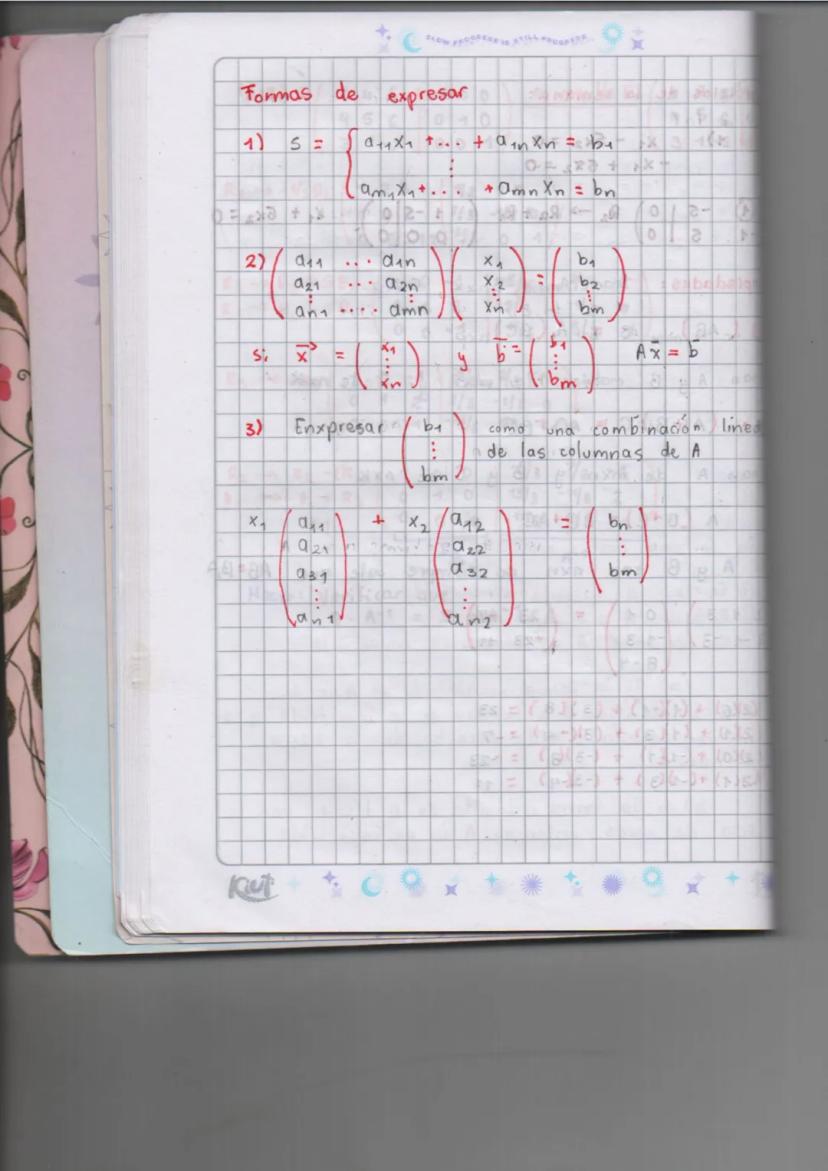 SLOW PROGRESS IS STILL PROGRESS
Formas de expresar
1) S = { a11x1 + ... + a1n xn = b1
⋮
am1x1 + ... + amn xn = bn
2) ( a11 ... a1n ) ( x1 ) = ( b1 )
a21 ... a2n x2 b2
⋮ ⋮ ⋮ ⋮
an1 .... amn xn bm
si x⃗ = ( x1 ⋮ xn ) y b̄ = ( b1 ⋮ bm ) A x̄ = b̄
3) Enxpresar ( b1 ⋮ bm ) como una combinación linea
de las columnas de A
x1 ( a11 ) + x2 ( a12 ) = ( bn )
a21 a22 ⋮
a31 a32 bm
⋮ ⋮
an1 an2
Kiut